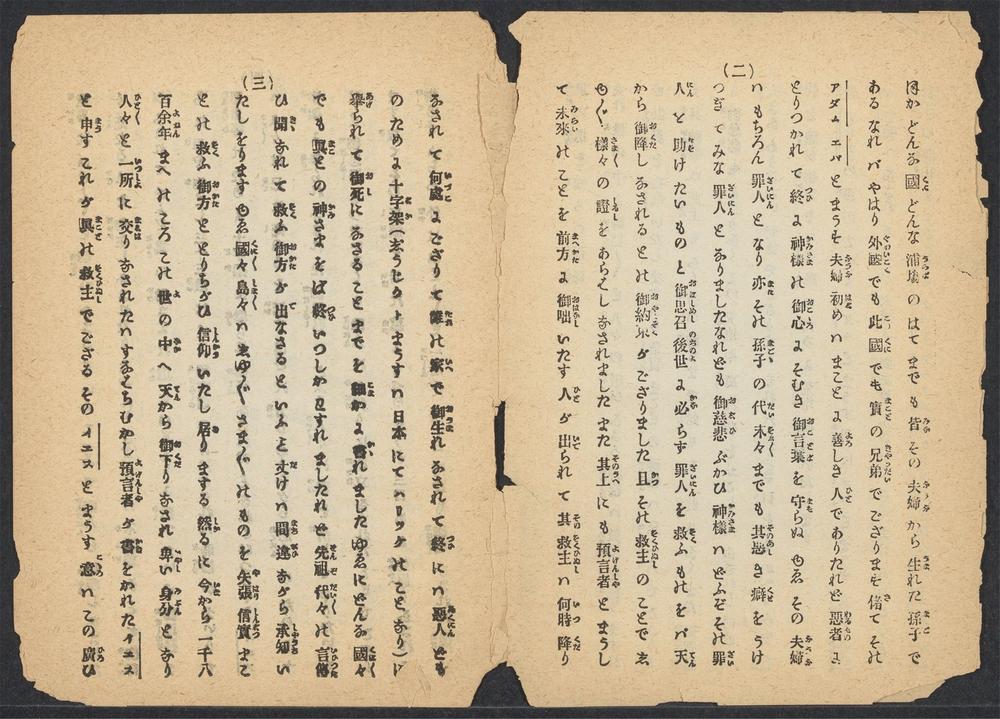 (二)
ほかどんな國どんな浦のはてまでも皆その夫婦から生れた孫子で
あるなれバやはり外國でも此國でも實の兄弟でござりまする偖てその
アダム エバとまうす夫婦初めハまことに善しき人でありたれど悪者に
とりつかれて終に神様の御心にそむき御言葉を守らぬゆゑその夫婦
ハもちろん罪人となり亦その孫子の代末々までも其悪き癖をうけ
つぎてみな罪人となりましたなれども御慈悲ぶかひ神様ハどふぞその罪
人を助けたいものと御思召後世に必らず罪人を救ふものをバ天
から御降しなされるとの御約束がござりました且その救主のことでゑ
様々の證をあらはしなされましたまた其上にも預言者とまうし
て未來のことを前方に御咄いたす人が出られて其救主ハ何時降り
(三)
なされて何處にござりて誰の家で御生れなされて終にハ悪人ども
のために十字架(まうすハ日本にてハハリツケのことなり)に
舉られて御死になさることまでを細かに書れましたゆゑにどんな國々
でも眞との神さまをば終いつしかわすれましたれど先祖代々の言傳
ひ聞なれて救ふ御方が出なさるといふこと丈けハ間違ながら承知い
たしをりますゆゑ國々島々ハゑゆ〴〵さま〴〵のものを矢張信實まこ
との救ふ御方ととりちがひ信仰いたし居りまする然るに今から一千八
百余年まへのころこの世の中へ天から御下りなされ卑い身分となり
人々と一所に交りなされたハすなはちむかし預言者が書をかれたイエス
と申すこれが眞の救主でござるそのイエスとまうす意ハこの廣ひ